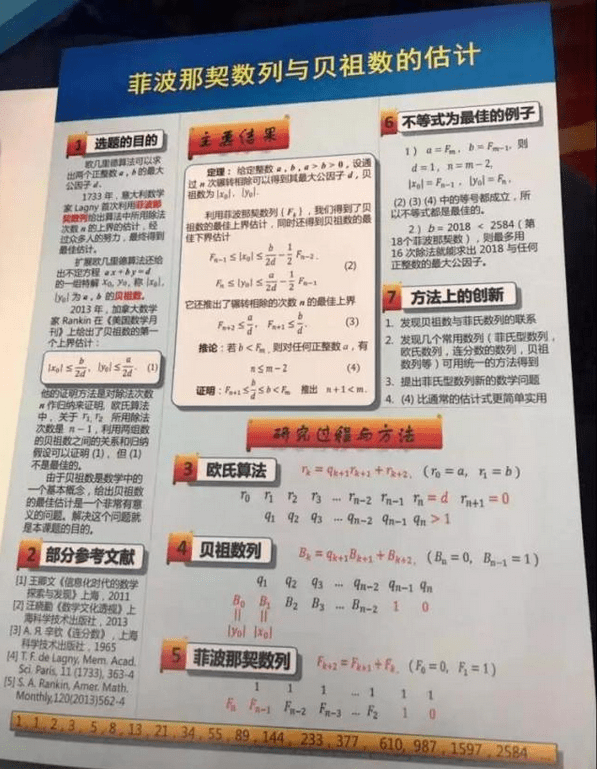 菲波那契数列与贝祖数的估计
1 选题的目的
欧几里德算法可以求
出两个正整数 a,b 的最大
公因子 d.
1733 年，意大利数学
家 Lagny 首次利用菲波那
契数列给出算法中所用除法
次数 n 的上界的估计，经
过众多人的努力，最终得到
最佳估计。
扩展欧几里德算法还给
出不定方程 ax+by=d
的一组特解 x₀, y₀, 称 |x₀|,
|y₀| 为 a, b 的贝祖数。
2013 年，加拿大数学
家 Rankin 在《美国数学月
刊》上给出了贝祖数的第一
个上界估计：
|x₀| ≤ b/2d, |y₀| ≤ a/2d. (1)
他的证明方法是对除法次数
n 作归纳来证明, 欧氏算法
中，关于 r₁, r₂ 所用除法
次数是 n-1，利用两组数
的贝祖数之间的关系和归纳
假设可以证明 (1)、但 (1)
不是最佳的。
由于贝祖数是数学中的
一个基本概念，给出贝祖数
的最佳估计是一个非常有意
义的问题。解决这个问题就
是本课题的目的。
2 部分参考文献
[1] 王卿文《信息化时代的数学
探索与发现》上海，2011
[2] 汪晓勤《数学文化透视》上
海科学技术出版社，2013
[3] А. Я. 辛钦《连分数》，上海
科学技术出版社，1965
[4] T. F. de Lagny, Mem. Acad.
Sci. Paris, 11 (1733), 363-4
[5] S. A. Rankin, Amer. Math.
Monthly,120(2013)562-4
主要结果
定理：给定整数 a, b, a > b > 0, 设通
过 n 次辗转相除可以得到其最大公因子 d, 贝
祖数为 |x₀|, |y₀|.
利用菲波那契数列 {Fₖ}，我们得到了贝
祖数的最佳上界估计，同时还得到贝祖数的最
佳下界估计
Fₙ₋₁ ≤ |x₀| ≤ b/2d − 1/2 Fₙ₋₂.
(2)
Fₙ ≤ |y₀| ≤ a/2d − 1/2 Fₙ₋₁
它还推出了辗转相除的次数 n 的最佳上界
Fₙ₊₂ ≤ a/d, Fₙ₊₁ ≤ b/d. (3)
推论：若 b < Fₘ, 则对任何正整数 a，有
n ≤ m − 2 (4)
证明：Fₙ₊₁ ≤ b/d ≤ b < Fₘ 推出 n + 1 < m.
6 不等式为最佳的例子
1) a = Fₘ, b = Fₘ₋₁, 则
d = 1, n = m − 2,
|x₀| = Fₙ₋₁, |y₀| = Fₙ,
(2) (3) (4) 中的等号都成立，所
以不等式都是最佳的。
2) b = 2018 < 2584（第
18个菲波那契数），则最多用
16 次除法就能求出 2018 与任何
正整数的最大公因子。
7 方法上的创新
1. 发现贝祖数与菲氏数列的联系
2. 发现几个常用数列（菲氏型数列，
欧氏数列，连分数的数列，贝祖
数列等）可用统一的方法得到
3. 提出菲氏型数列新的数学问题
4. (4) 比通常的估计式更简单实用
研究过程与方法
3 欧氏算法 rₖ = qₖ₊₁rₖ₊₁ + rₖ₊₂, (r₀ = a, r₁ = b)
r₀ r₁ r₂ r₃ … rₙ₋₂ rₙ₋₁ rₙ = d rₙ₊₁ = 0
q₁ q₂ q₃ … qₙ₋₂ qₙ₋₁ qₙ > 1
4 贝祖数列 Bₖ = qₖ₊₁Bₖ₊₁ + Bₖ₊₂, (Bₙ = 0, Bₙ₋₁ = 1)
q₁ q₂ q₃ … qₙ₋₂ qₙ₋₁ qₙ
B₀ B₁ B₂ B₃ … Bₙ₋₂ 1 0
|| ||
|y₀| |x₀|
5 菲波那契数列 Fₖ₊₂ = Fₖ₊₁ + Fₖ, (F₀ = 0, F₁ = 1)
1 1 1 … 1 1 1
Fₙ Fₙ₋₁ Fₙ₋₂ Fₙ₋₃ … F₂ 1 0
1, 1, 2, 3, 5, 8, 13, 21, 34, 55, 89, 144, 233, 377, 610, 987, 1597, 2584 …